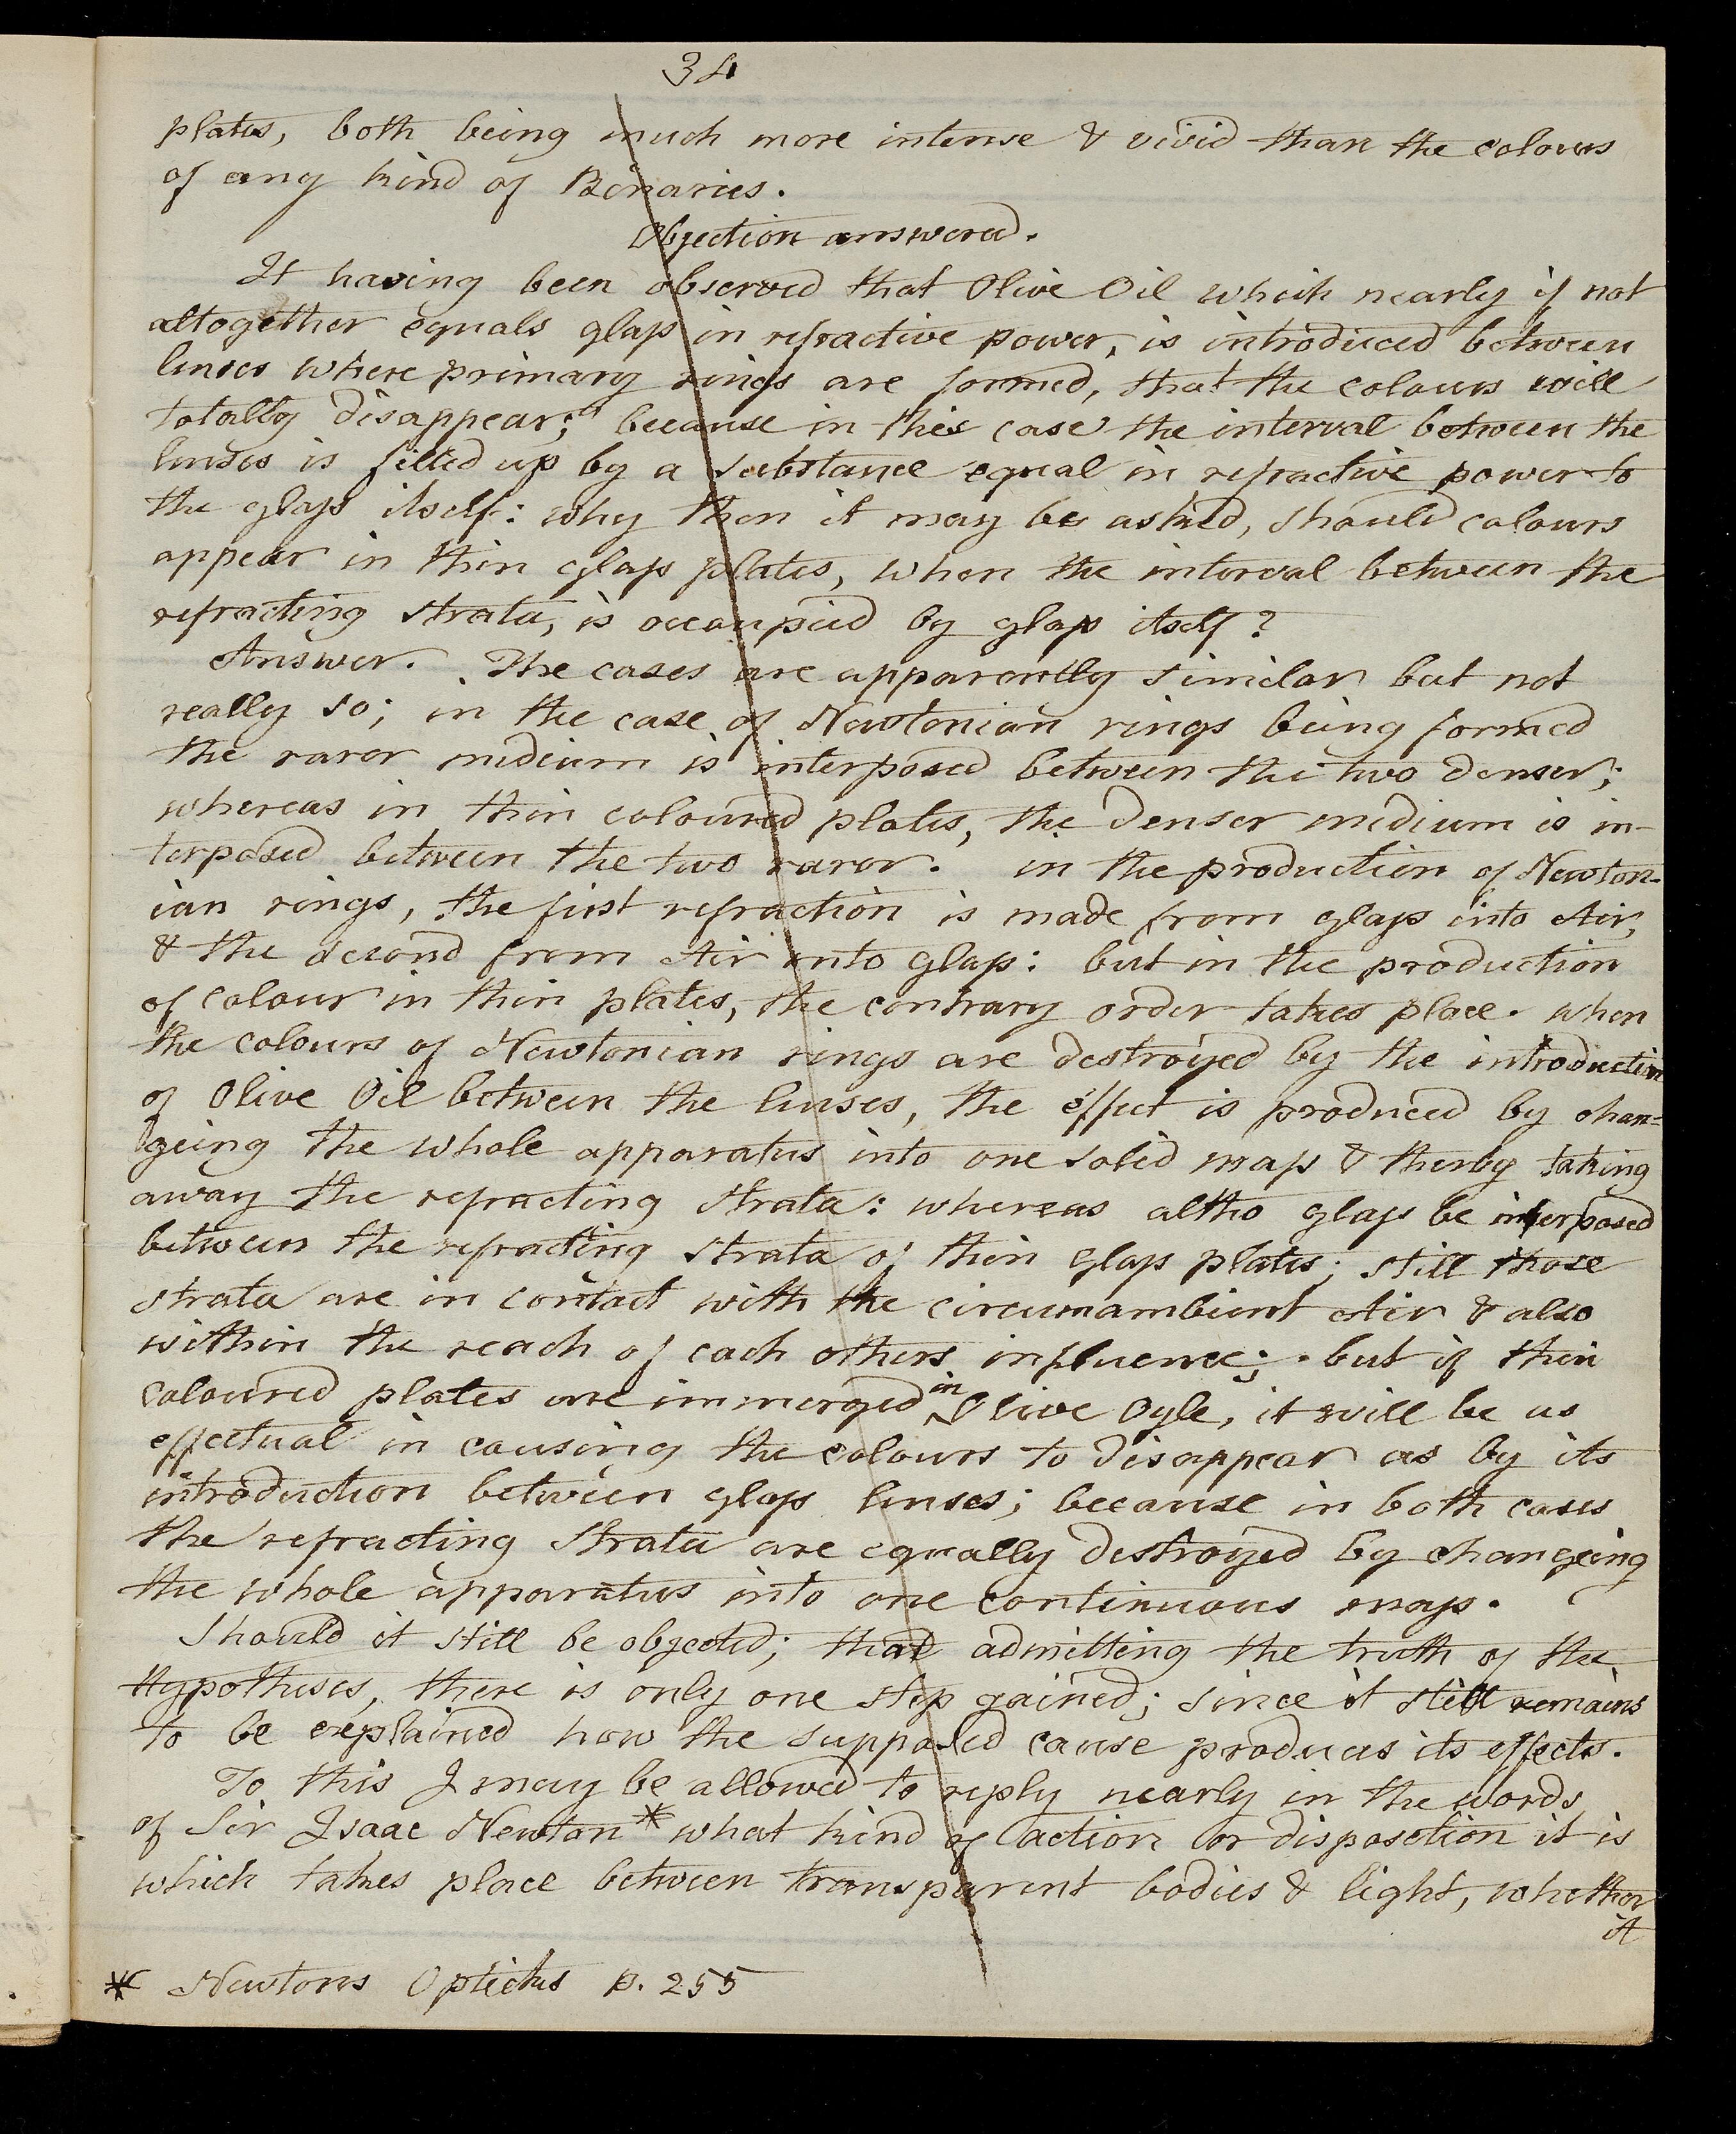 34
plates, both being much more intense & vivid than the colours
of any kind of Binaries.
Objection answered.
It having been observed that Olive Oil which nearly if not
altogether equals glass in refractive power, is introduced between
linses where primary rings are formed, that the colours will
totally disappear; because in this case the interval between the
linses is filled up by a substance equal in refractive power to
the glass itself: why then it may be asked, should colours
appear in thin glass plates, when the interval between the
refracting strata, is occupied by glass itself?
Answer. The cases are apparently similar but not
really so; in the case of Newtonian rings being formed
the rarer medium is interposed between the two denser;
whereas in thin coloured plates, the denser medium is in-
terposed between the two rarer. in the production of Newton-
ian rings, the first refraction is made from glass into Air,
& the second from Air into glass: but in the production
of colour in thin plates, the contrary order takes place. when
the colours of Newtonian rings are destroyed by the introduction
of Olive Oil between the linses, the effect is produced by chan=
geing the whole apparatus into one solid mass & therby taking
away the refracting strata: whereas altho glass be interposed
between the refracting strata of thin glass plates; still those
strata are in contact with the circumambient Air & also
within the reach of each others influence; but if thin
coloured plates are immerged in Olive Oyle, it will be as
effectual in causing the colours to disappear as by its
introduction between glass linses; because in both cases
the refracting strata are equally destroyed by changeing
the whole apparatus into one continuous mass.
Should it still be objected; that admitting the truth of the
Hypothesis, there is only one step gained; since it still remains
to be explained how the supposed cause produces its effects.
To this I may be allowed to reply nearly in the words
of Sir Isaac Newton* what kind of action or disposition it is
which takes place between transparent bodies & light, whether
it
* Newtons Opticks p. 255